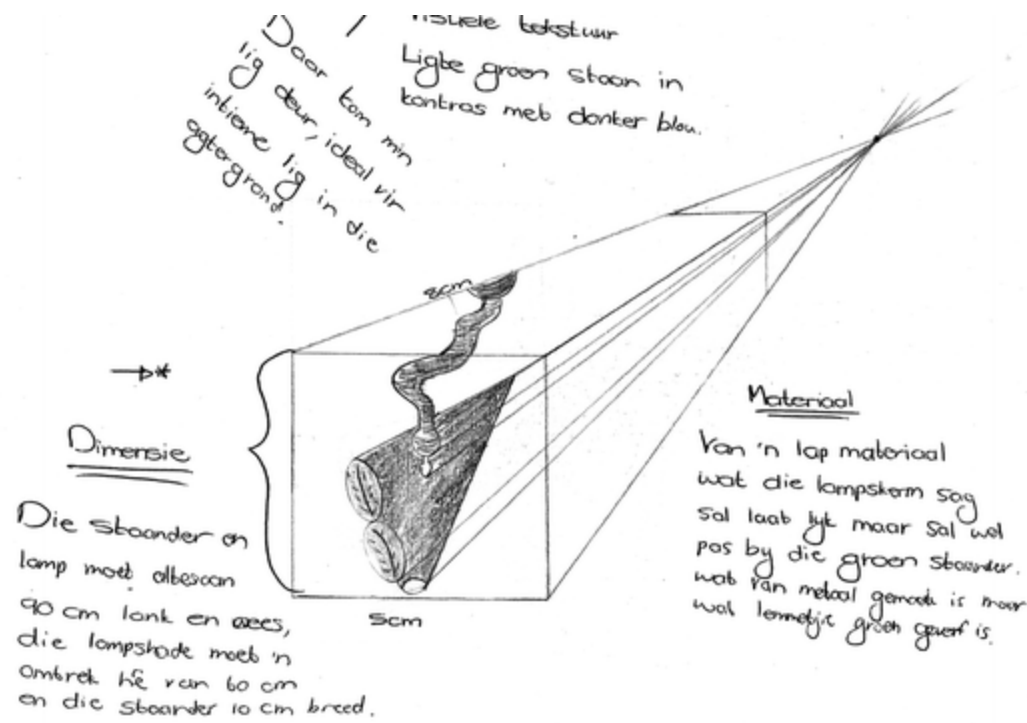 tekstuur
Ligte groen staan in
kontras met donker blou.
Daar kom min
lig deur, ideal vir
intieme lig in die
agtergrond.
8cm
Dimensie
Die staander en
lamp moet albesaan
90 cm lank en wees,
die lampshade moet 'n
omtrek hê van 60 cm
en die staander 10 cm breed.
5cm
Materiaal
Van 'n lap materiaal
wat die lampskerm sag
sal laat lyk maar sal wel
pas by die groen staander.
wat van metaal gemaak is maar
wat lemmetjie groen geverf is.